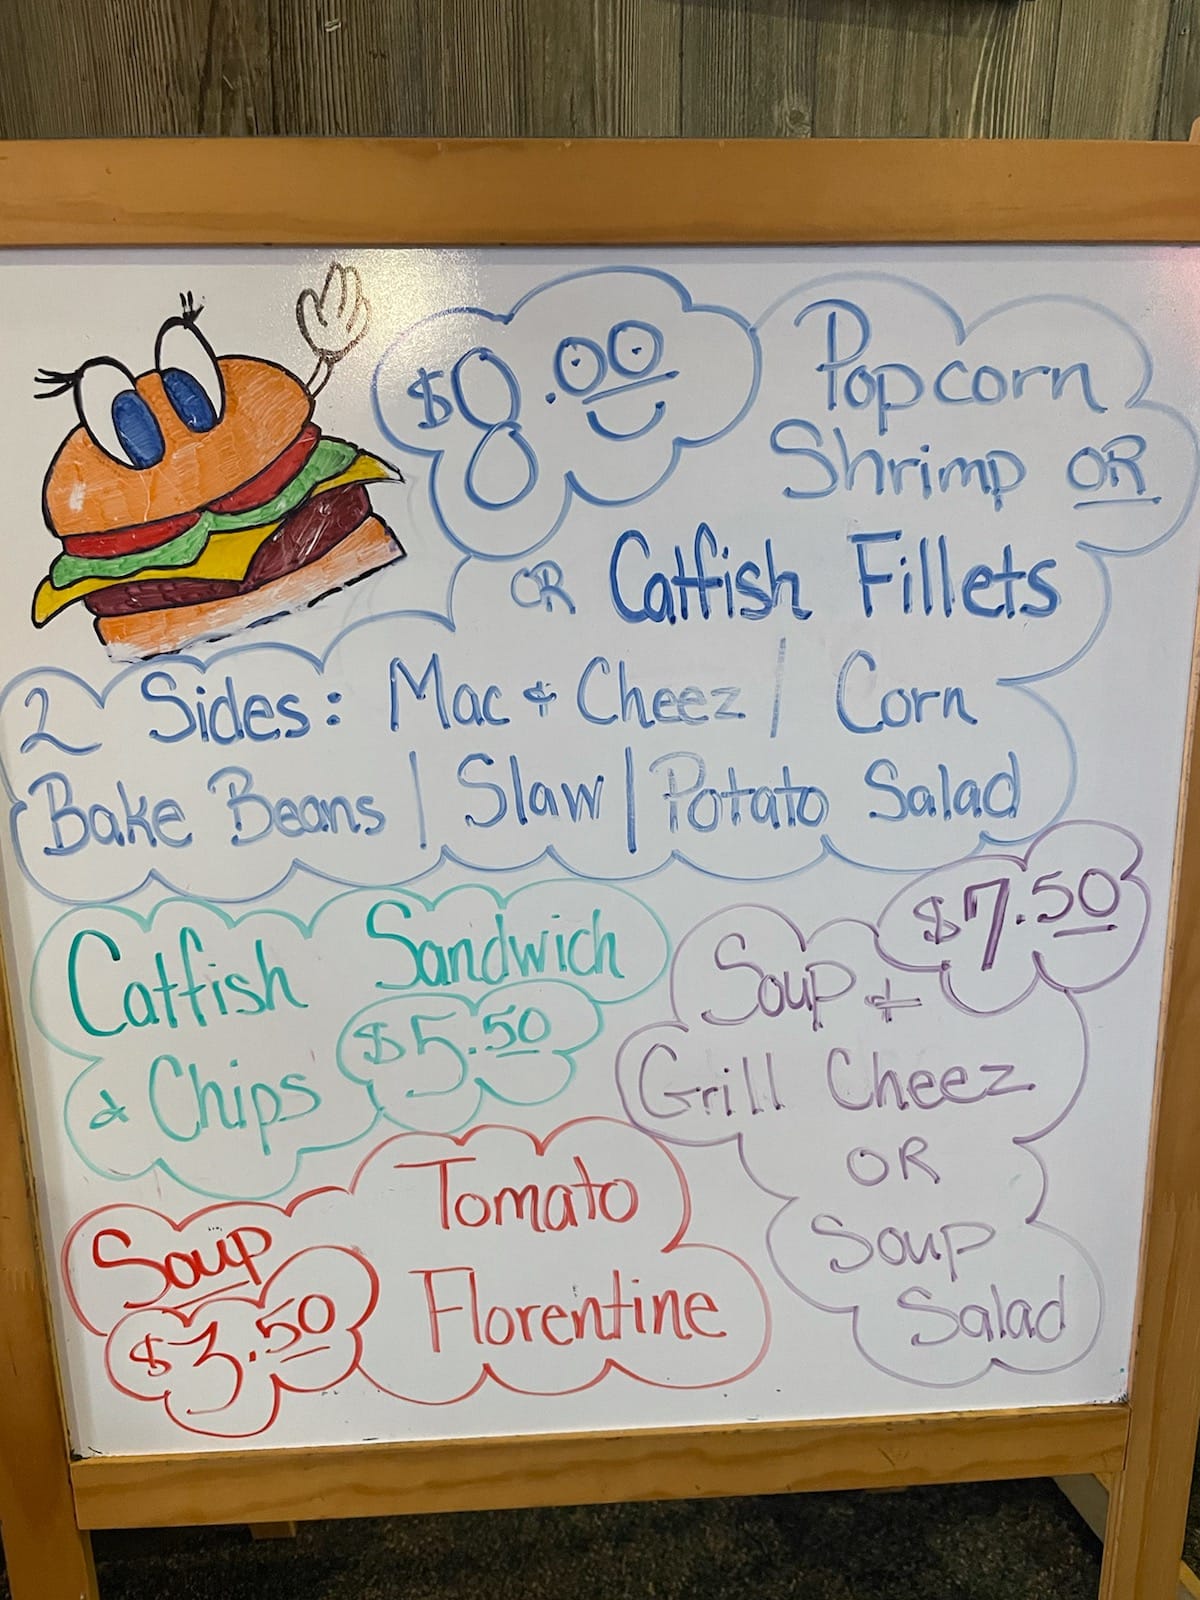 $8.00 Popcorn
Shrimp OR
OR Catfish Fillets
2 Sides: Mac & Cheez / Corn
Bake Beans / Slaw / Potato Salad
Catfish Sandwich
& Chips $5.50
$7.50
Soup &
Grill Cheez
OR
Soup
Salad
Soup
$3.50
Tomato
Florentine